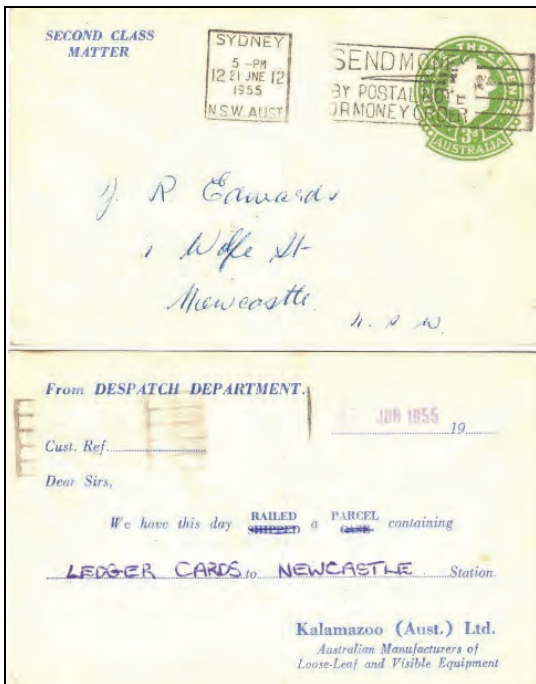 SECOND CLASS
MATTER
SYDNEY
5 - PM
12 21 JNE 12
1955
N.S.W. AUST
SEND MONEY
BY POSTAL NOTE
OR MONEY ORDER
THREE PENCE
3d
AUSTRALIA
J. R Edwards
1 Wolfe St
Newcastle.
N. S. W.
From DESPATCH DEPARTMENT.
JUN 1955 19
Cust. Ref.
Dear Sirs,
We have this day RAILED SHIPPED a PARCEL CASE containing
LEDGER CARDS to NEWCASTLE Station.
Kalamazoo (Aust.) Ltd.
Australian Manufacturers of
Loose-Leaf and Visible Equipment